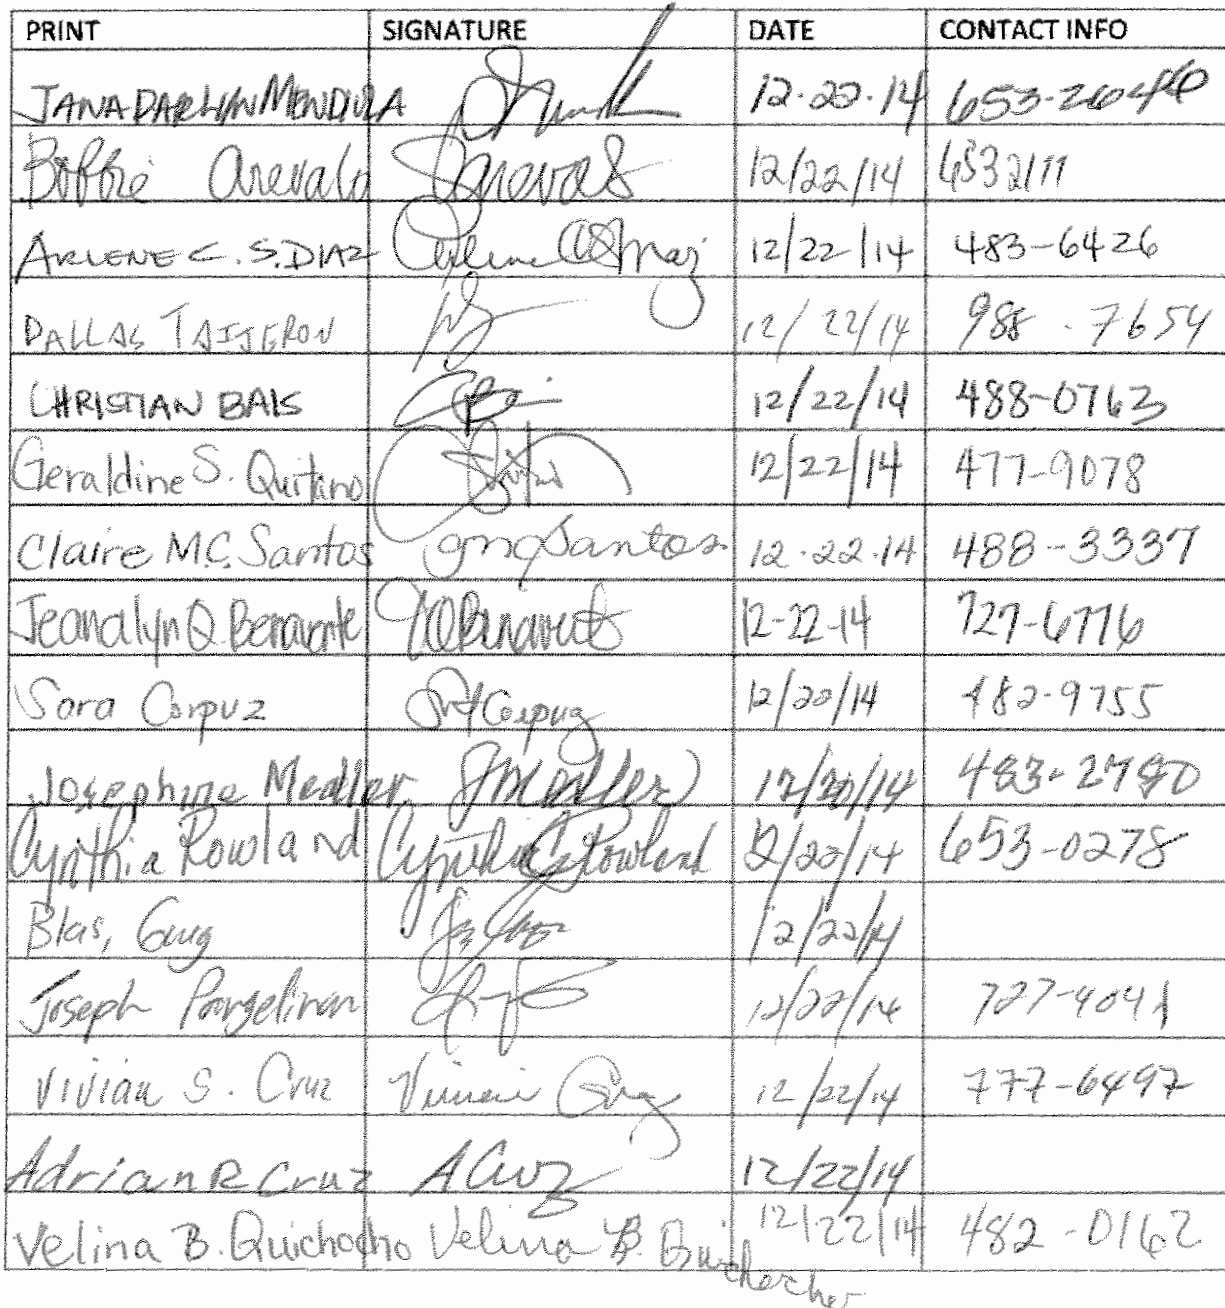 PRINT SIGNATURE DATE CONTACT INFO
JANA DARLYN MENDIOLA 12.22.14 653-2646
Bobbie Arevalo Arevalo 12/22/14 6532111
ARLENE C. S. DIAZ Arlene CS Diaz 12/22/14 483-6426
DALLAS TAIJERON 12/22/14 988-7654
CHRISTIAN BAIS 12/22/14 488-0763
Geraldine S. Quitano 12/22/14 477-9078
Claire M.C. Santos Santos 12.22.14 488-3337
Jeanalyn Q. Benavente JQBenavente 12-22-14 727-6776
Sara Corpuz Corpuz 12/22/14 482-9755
Josephine Medler JMedler 12/22/14 483-2780
Cynthia Rowland Cynthia Rowland 12/22/14 653-0278
Blas, 12/22/14
Joseph Pangelinan 12/22/14 727-4041
Vivian S. Cruz Vivian Cruz 12/22/14 777-6497
Adrian R Cruz A Cruz 12/22/14
Velina B. Quichocho Velina B. Quichocho 12/22/14 482-0162